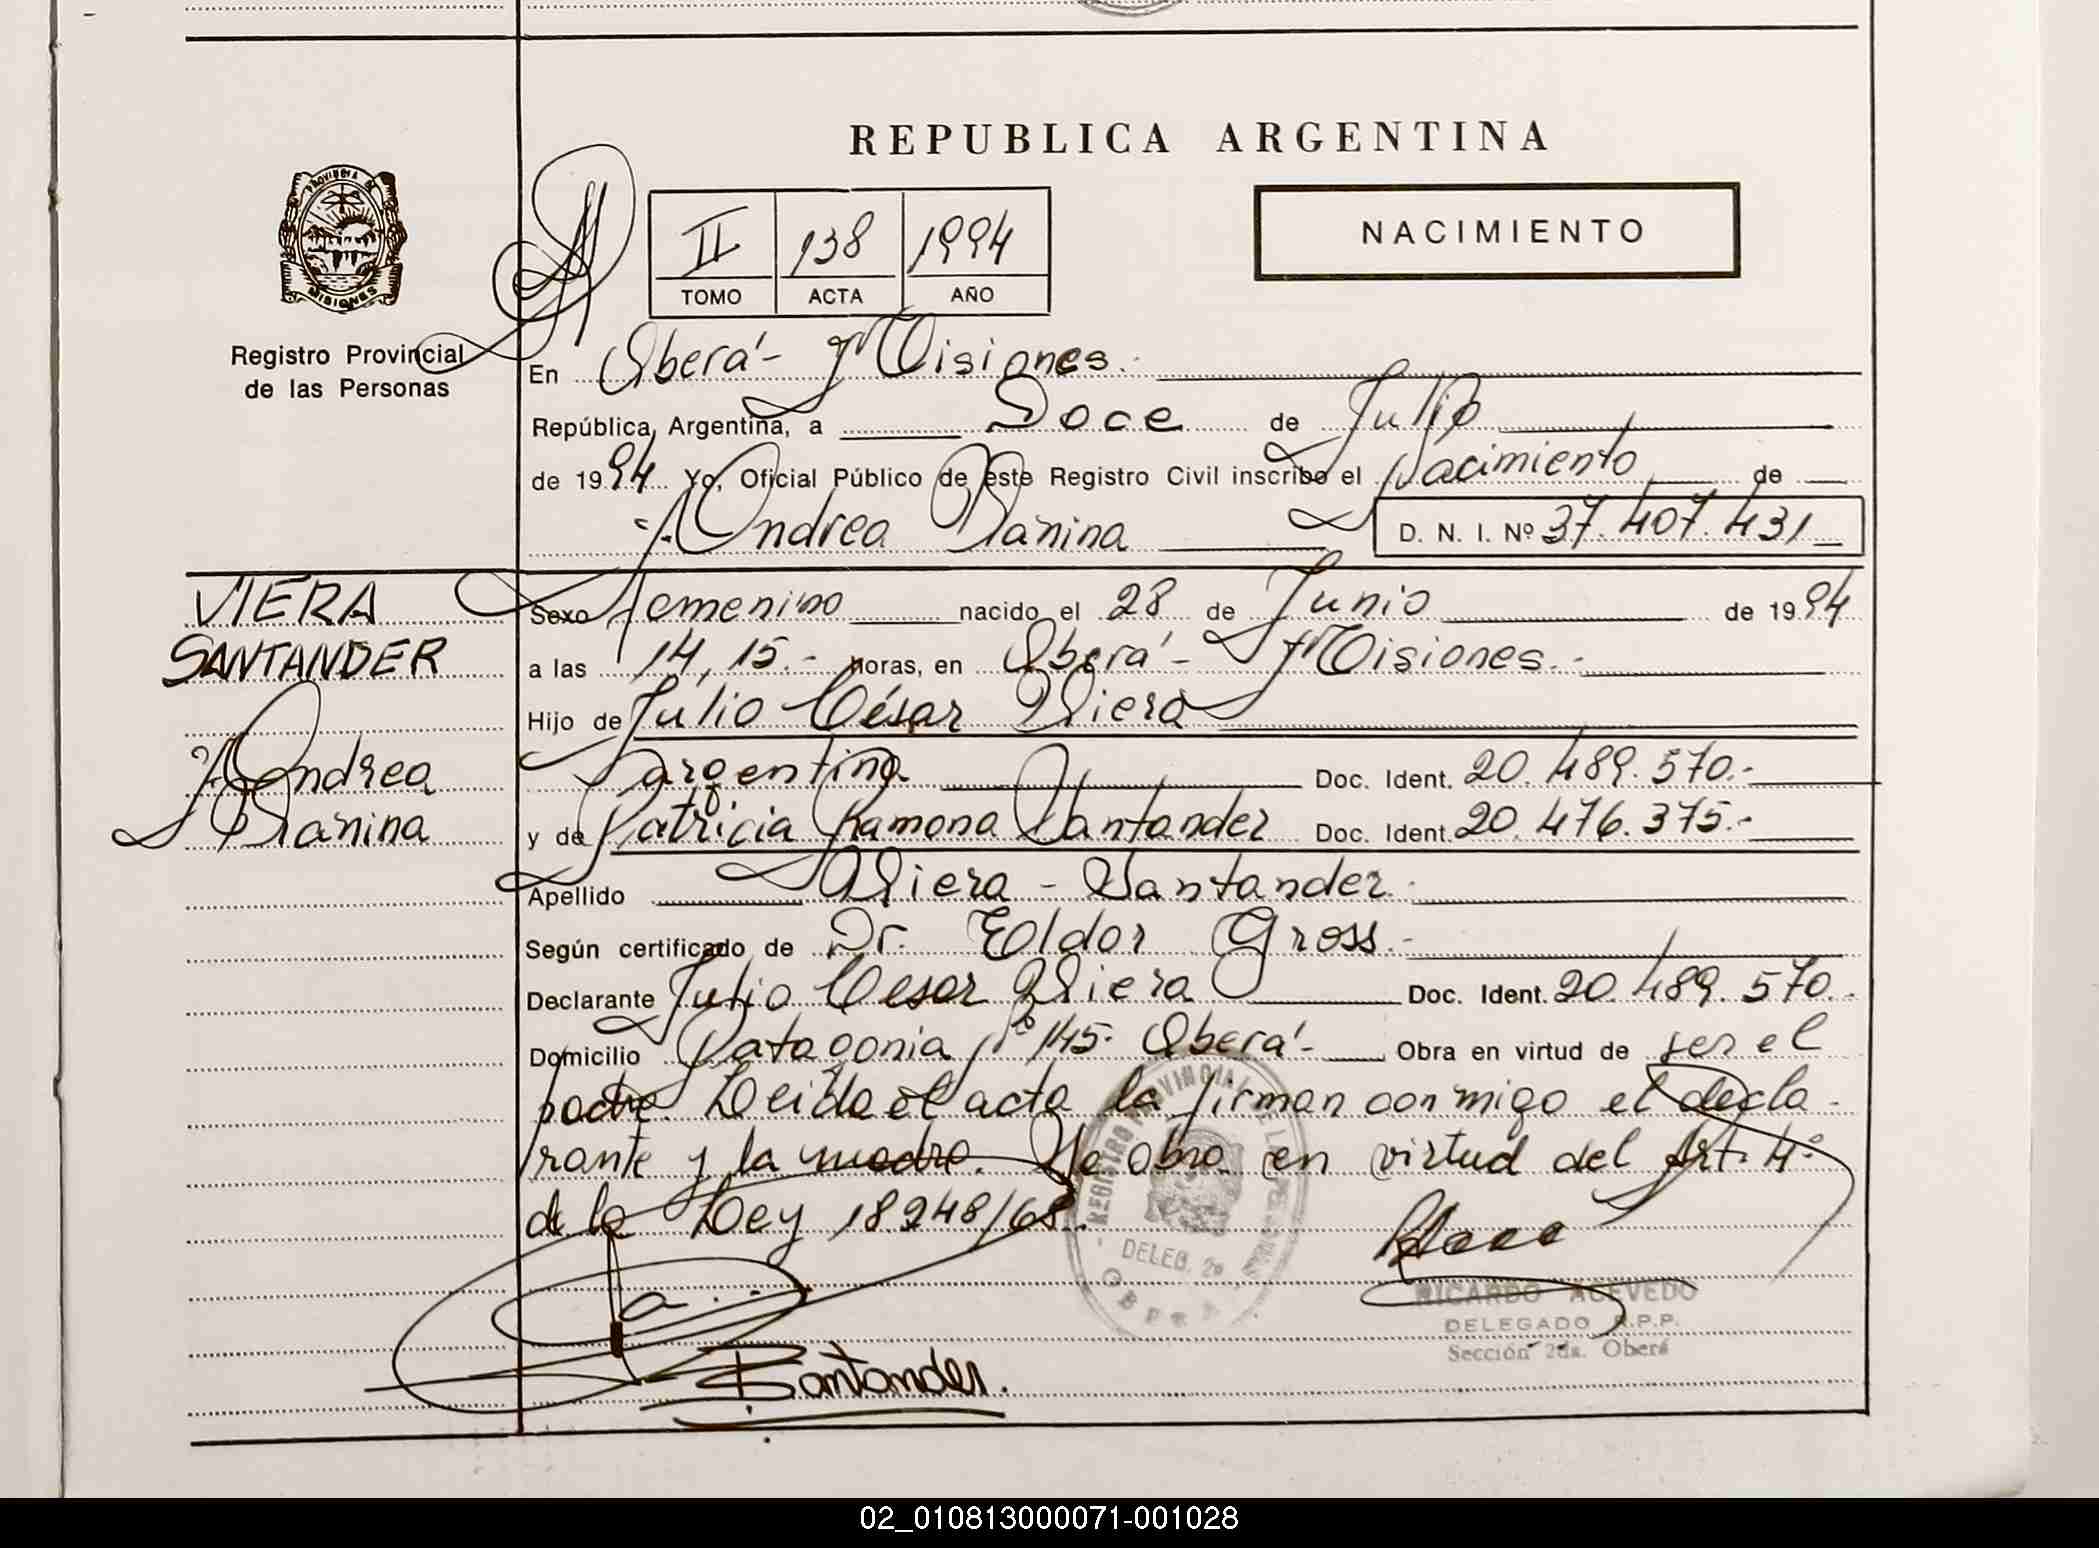 REPUBLICA ARGENTINA
PROVINCIA DE
MISIONES
Registro Provincial
de las Personas
II 138 1994
TOMO ACTA AÑO
NACIMIENTO
En Oberá - Misiones.
República Argentina, a Doce de Julio
de 1994 Yo, Oficial Público de este Registro Civil inscribo el Nacimiento de
Andrea Yanina D. N. I. Nº 37.407.431
VIERA
SANTANDER
Andrea
Yanina
Sexo Femenino nacido el 28 de Junio de 1994
a las 14,15.- horas, en Oberá - Misiones.-
Hijo de Julio César Viera
argentino Doc. Ident. 20.489.570.-
y de Patricia Ramona Santander Doc. Ident. 20.476.375.-
Apellido Viera - Santander.
Según certificado de Dr. Eldor Gross.-
Declarante Julio Cesar Viera Doc. Ident. 20.489.570.-
Domicilio Patagonia Nº 145- Oberá- Obra en virtud de ser el
padre. Leida el acta la firman conmigo el decla-
rante y la madre. Se obra en virtud del Art. 4º
de la Ley 18248/68.
REGISTRO PROVINCIAL DE LAS
DELEG. 2ª
OBERA
RICARDO ACEVEDO
DELEGADO R.P.P.
Sección 2da. Oberá
Santander.
02_010813000071-001028